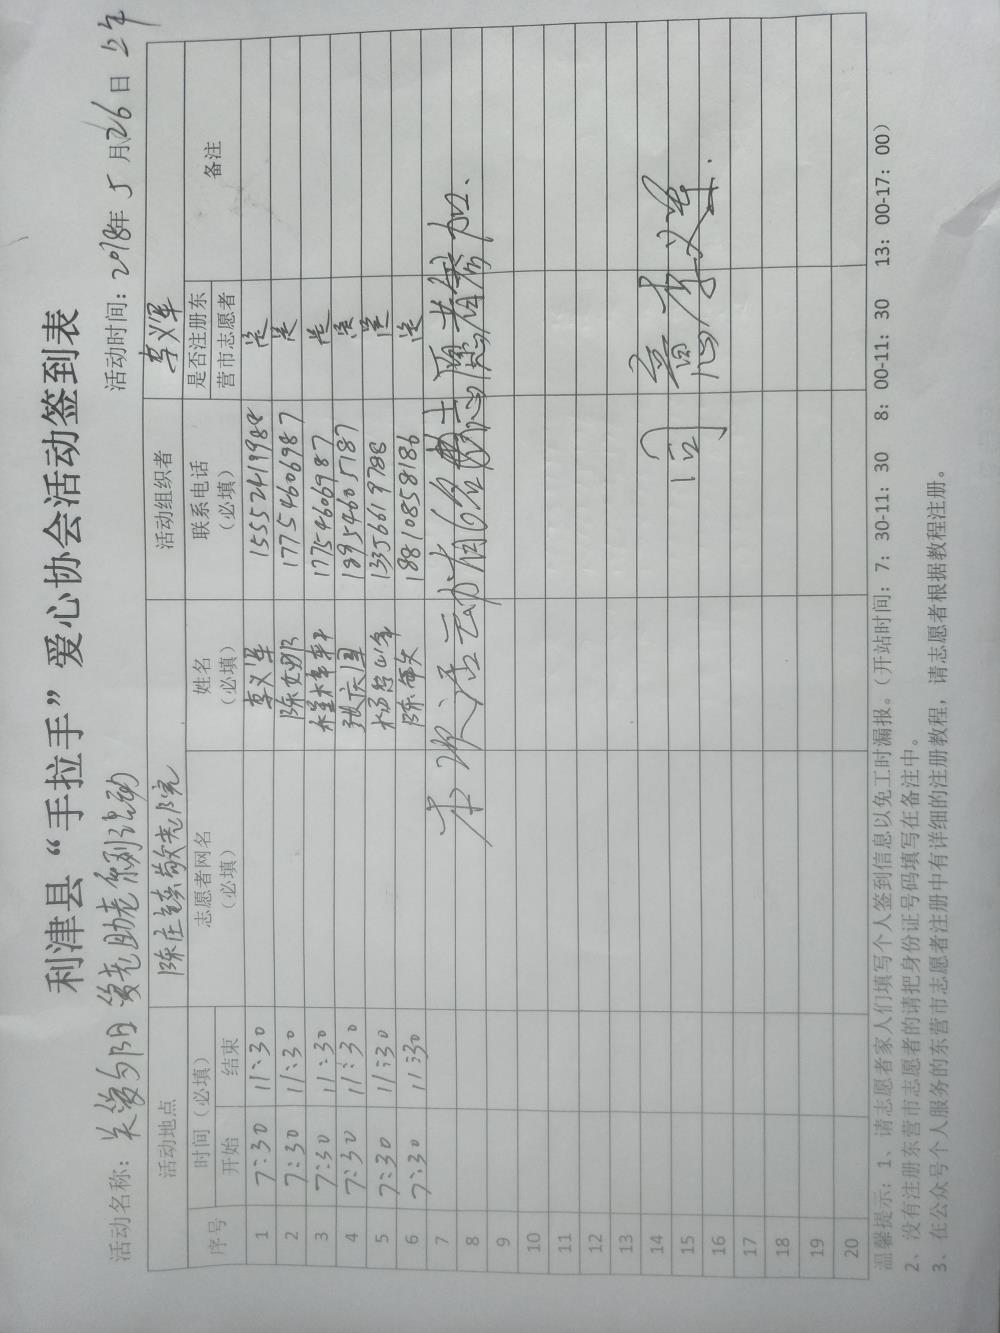 利津县“手拉手”爱心协会活动签到表
活动名称：关爱夕阳 爱老助老系列活动 活动时间：2018年5月26日上午
活动地点 陈庄镇敬老院 活动组织者 李义军
序号 时间（必填） 志愿者网名（必填） 姓名（必填） 联系电话（必填） 是否注册东营市志愿者 备注
开始 结束
1 7:30 11:30 李义军 15552419988 是
2 7:30 11:30 陈娜 17754606987 是
3 7:30 11:30 17754666987 是
4 7:30 11:30 张庆国 18954605187 是
5 7:30 11:30 13356619788 是
6 7:30 11:30 陈海文 18810858186 是
7
8 本次活动有6名志愿者参加.
9
10
11
12
13
14
15 同意 李义军.
16
17
18
19
20
温馨提示：1、请志愿者家人们填写个人签到信息以免工时漏报。（开站时间：7：30-11：30 8：00-11：30 13：00-17：00）
2、没有注册东营市志愿者的请把身份证号码填写在备注中。
3、在公众号个人服务的东营市志愿者注册中有详细的注册教程，请志愿者根据教程注册。